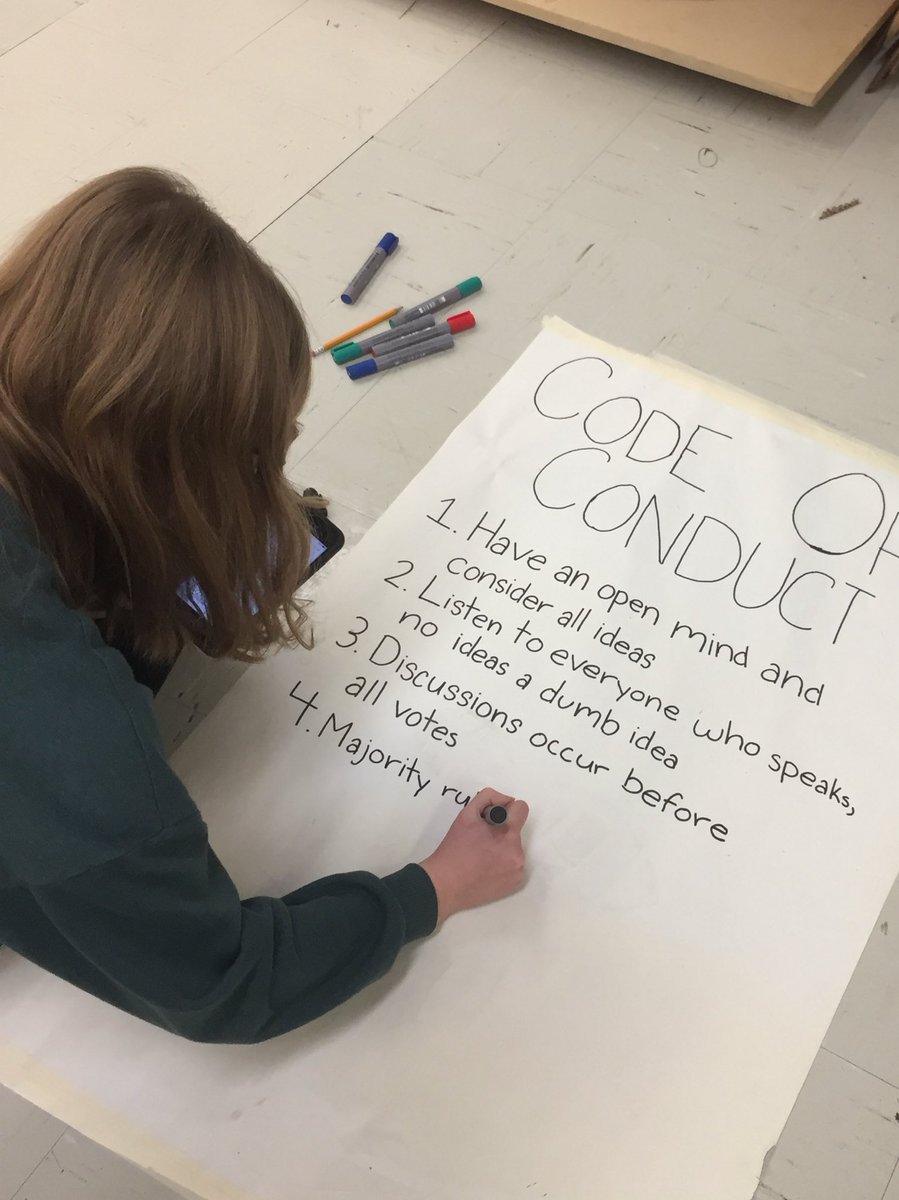 CODE OF
CONDUCT
1. Have an open mind and
consider all ideas
2. Listen to everyone who speaks,
no ideas a dumb idea
3. Discussions occur before
all votes
4. Majority ru